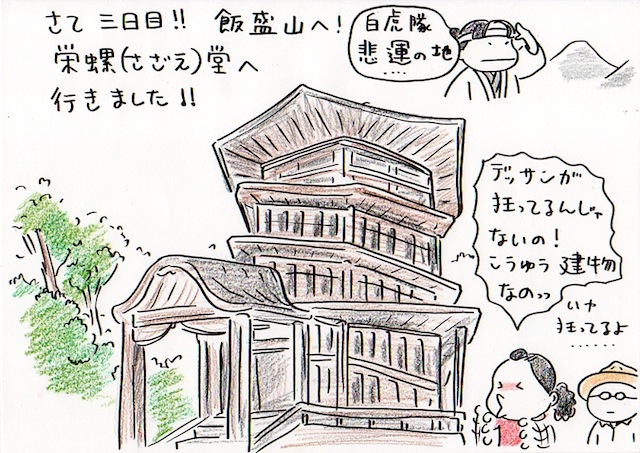 さて 三日目!! 飯盛山へ!
栄螺(さざえ)堂へ
行きました!!
白虎隊
悲運の地
.....
デッサンが
狂ってるんじゃ
ないの!
こうゆう 建物
なのっっ
いや
狂ってるよ
......